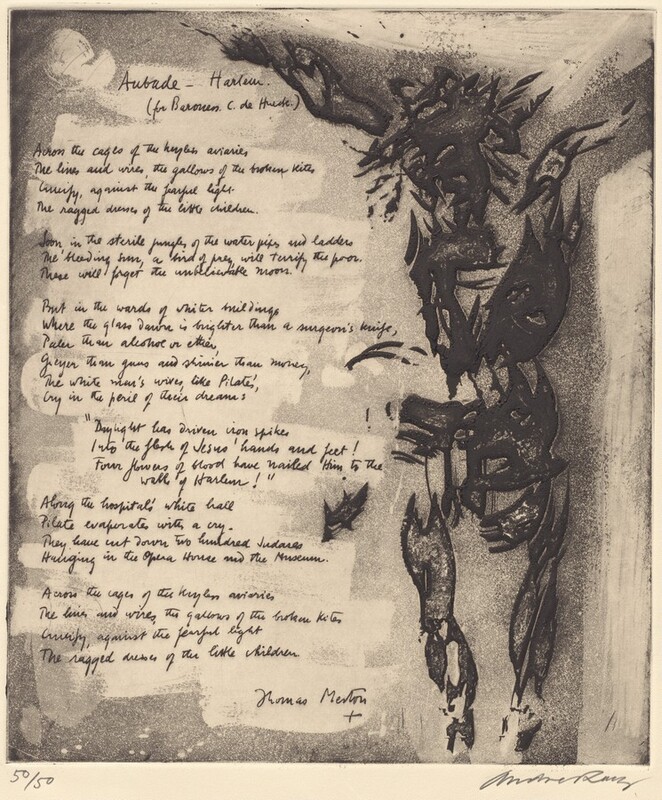 Aubade – Harlem.
(for Baroness. C. de Hueck.)
Across the cages of the keyless aviaries
The lines and wires, the gallows of the broken kites
Crucify, against the fearful light.
The ragged dresses of the little children.
Soon in the sterile jungles of the water pipes and ladders
The bleeding sun, a bird of prey, will terrify the poor.
These will forget the unbelievable moon.
But in the wards of whiter buildings
Where the glass dawn is brighter than a surgeon's knife,
Paler than alcohol or ether,
Greyer than guns and shinier than money,
The white men's wives like Pilate's,
Cry in the peril of their dreams
"Daylight has driven iron spikes
Into the flesh of Jesus' hands and feet!
Four flowers of blood have nailed Him to the
walls of Harlem!"
Along the hospitals' white hall
Pilate evaporates with a cry.
They have cut down two hundred Judases
Hanging in the Opera House and the Museum.
Across the cages of the keyless aviaries
The lines and wires, the gallows of the broken kites
Crucify, against the fearful light
The ragged dresses of the little children
Thomas Merton
+
50/50 Andre Racz